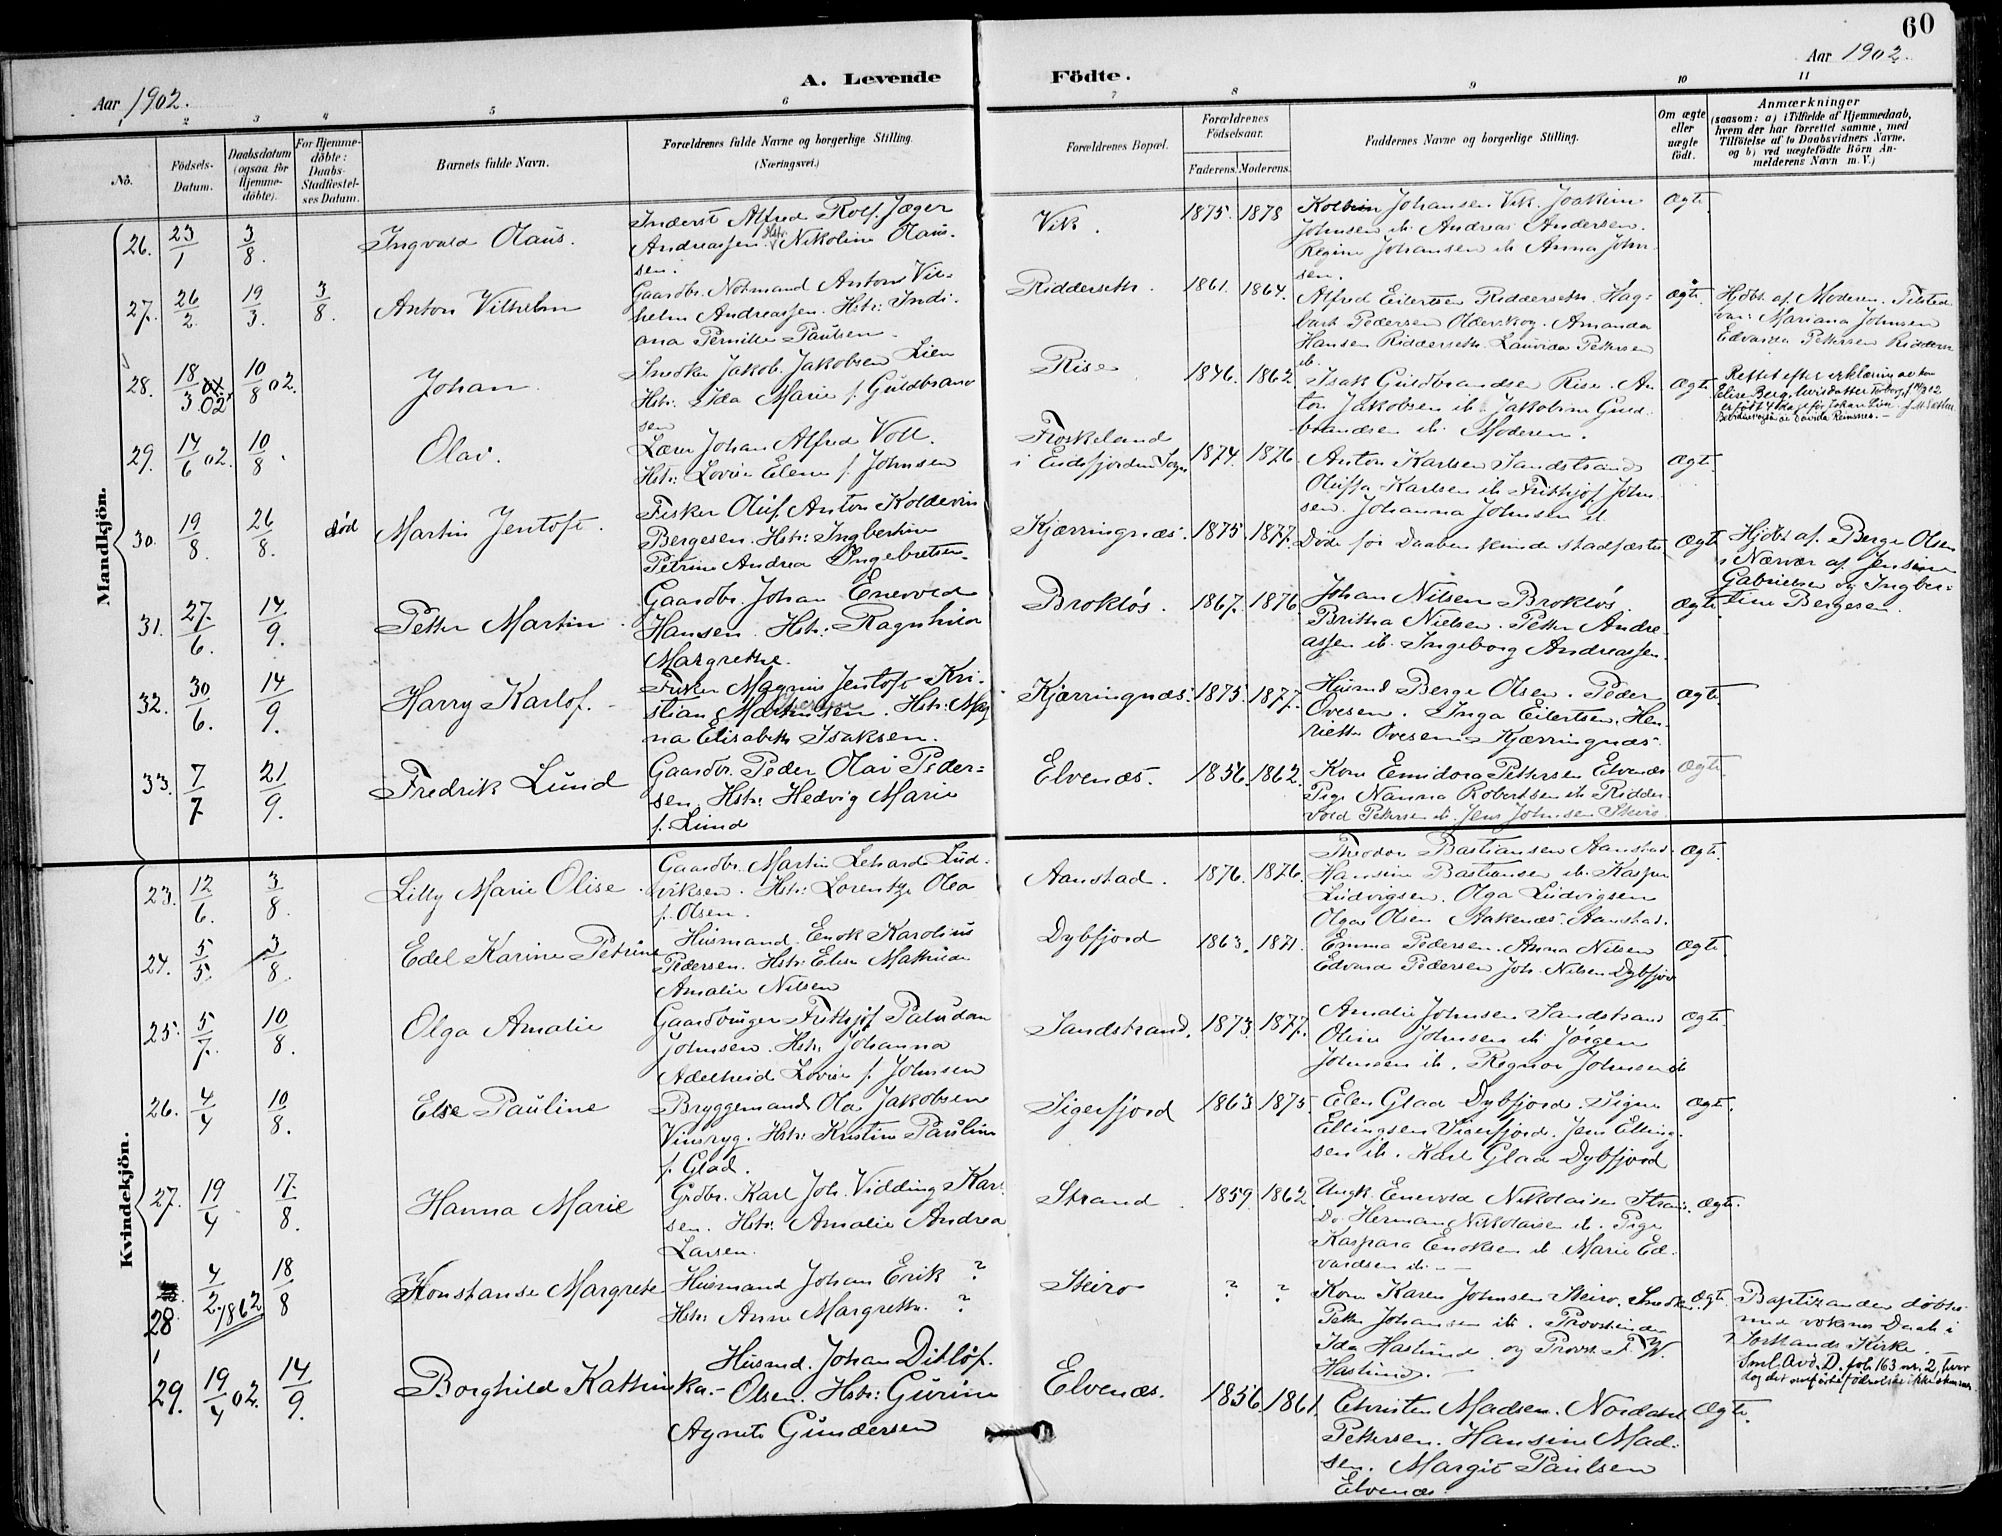 60
Aar 1902.
A. Levende Födte.
Aar 1902.
1 2 3 4 5 6 7 8 9 10 11
No.
Födsels-Datum.
Daabsdatum (ogsaa for Hjemme-döbte).
For Hjemme-döbte: Daabs-Stadfæstel-ses Datum.
Barnets fulde Navn.
Forældrenes fulde Navne og borgerlige Stilling.
(Næringsvei.)
Forældrenes Bopæl.
Forældrenes Födselsaar.
Faderens. Moderens.
Faddernes Navne og borgerlige Stilling.
Om ægte eller uægte födt.
Anmærkninger
(saasom: a) i Tilfælde af Hjemmedaab, hvem der har forrettet samme, med Tilföielse af to Daabsvidners Navne. og b) ved uægtefödte Börn Anmelderens Navn m. V.)
Mandkjön.
26. 23/1 3/8. Ingvald Olaus.
Inderst Alfred Rolf Jæger
Andreassen. Hstr. Nikoline Olaus-
sen.
Vik. 1875. 1878
Johansen Vik. Joakim
Johnsen ib. Andreas Andersen.
Regine Johansen ib. Anna John-
sen.
Ægte.
27. 26/2 19/3. 3/8. Anton Vilhelm
Gaardbr. Notmand Anton Vil-
helm Andreassen. Hstr: Indi-
ana Pernille Paulsen.
Ridderseth. 1861. 1864.
Alfred Eilertsen Ridderseth. Hag-
bart Pedersen Olderskog. Amanda
Hansen Ridderseth. Lauvida Pettersen
ib.
Ægte.
Hdbt. af Moderen. Tilstede
var: Mariana Johnsen
Edvarda Pettersen Ridders
28. 18/3 02 10/8 02. Johan.
Snedker Jakob Jakobsen Lien
Hstr: Ida Marie f. Guldbrand
sen
Rise 1846. 1862.
Isak Guldbrandsen Rise. An-
ton Jakobsen ib. Jakobine Guld-
brandsen ib. Moderen.
Ægte
Rettet efter erklæring av kon
Elise Berg, hvis datter Torborg f. 14/3 02
er født 4 dage før Johan Lien.
29. 17/6 02. 10/8. Olav.
Lærer Johan Alfred Voll.
Hstr: Lovise Elene f. Johnsen
Froskeland
i Eidsfjorden Sogn 1874. 1876.
Anton Karlsen Sandstrand
Oluffa Karlsen ib. Frithjof John-
sen. Johanna Johnsen ib.
Ægte.
30. 19/8. 26/8. död Martin Jentoft.
Fisker Oluf Anton Koldevin
Bergesen. Hstr: Ingbertine
Petrine Andrea Ingebretsen.
Kjærringnæs. 1875. 1877.
Döde för Daaben kunde stadfæstes
Ægte
Hjdbt. af Berge Olsen
i Nærvær af Jensine
Gabrielsen og Ingber-
tine Bergesen.
31. 27/6. 14/9. Petter Martin.
Gaardbr. Johan Enevold
Hansen. Hstr: Ragnhild
Margrethe.
Broklös. 1867. 1876
Johan Nilsen Broklös.
Britha Nielsen. Petter Andre-
assen ib. Ingeborg Andreassen.
Ægte.
32. 30/6. 14/9. Harry Karlof.
Fisker Magnus Jentoft Kri-
stian Martinsen. Hstr: Mag
na Elisabeth Isaksen.
Kjærringnæs. 1875. 1877.
Husmd Berge Olsen. Peder
Ovesen. Inga Eilertsen. Hen-
riette Ovesen Kjærringnæs.
Ægte.
33. 7/7. 21/9. Fredrik Lund
Gaardbr. Peder Olai Peder-
sen. Hstr: Hedvig Marie
f. Lund
Elvenæs. 1856. 1862.
Kone Emidora Pettersen Elvenæs
Pige Nanna Robertsen ib. Ridder-
vold Pettersen ib. Jens Johnsen Steiro
Ægte.
Kvindekjön.
23. 12/6. 3/8. Lilly Marie Olise.
Gaardbr. Martin Lehard Lud-
viksen. Hstr: Lorentze Olea
f. Olsen.
Aanstad. 1876. 1876.
Theodor Bastiansen Aanstad.
Hansine Bastiansen ib. Kaspar
Ludvigsen. Olga Ludvigsen
Olga Olsen Aakenæs. Aanstad.
Ægte.
24. 5/5. 3/8. Edel Karine Petrine
Husmand Enok Karolius
Pedersen. Hstr: Elise Mathilde
Amalie Nilsen
Dybfjord 1863. 1871.
Emma Pedersen. Anna Nilsen
Edvard Pedersen Joh. Nilsen Dybfjord
Ægte.
25. 5/7. 10/8. Olga Amalie
Gaardbruger Frithjof Paludan
Johnsen. Hstr. Johanna
Adelheid Lovise f. Johnsen
Sandstrand. 1873. 1877.
Amalie Johnsen Sandstrand
Oline Johnsen ib. Jörgen
Johnsen ib. Regnor Johnsen ib
Ægte.
26. 4/4 10/8. Else Pauline
Bryggemand Ola Jakobsen
Vinsryg. Hstr: Kristine Pauline
f. Glad.
Sigerfjord 1863 1875.
Elen Glad Dybfjord. Signe
Ellingsen Sigerfjord. Jens Elling-
sen ib. Karl Glad Dybfjord
Ægte.
27. 19/4 17/8. Hanna Marie
Grdbr. Karl Joh. Vidding Karl-
sen. Hstr: Amalie Andrea
Larsen.
Strand. 1859. 1862.
Ungk. Enevold Nikolaisen Strand.
Do. Herman Nikolaisen ib. Pige
Kaspara Enoksen ib Marie Ed-
vardsen ib. -
Ægte.
28 4/2. 1862 18/8 Konstanse Margrete
Husmand Johan Erik ?
Hstr: Anne Margrethe. ?
Steiro ? ?
Kone Karen Johnsen Steiro. Snedker
Petter Johansen ib. Provstinde
Ida Haslund og Provst F. W.
Haslund. -
Ægte.
Baptizanden döbtes
med voksnes Daab i
Sortlands Kirke. -
Sml. Avd. D. fol. 163 nr. 2, hvor
29. 19/4 02. 14/9. Borghild Kathinka. -
Husmd. Johan Ditlöf.
Olsen. Hstr: Gurine
Agnete Gundersen
Elvenæs. 1856. 1861.
Christen Madsen. Nordahl
Pettersen. Hansine Mad-
sen. Margit Paulsen
Elvenæs.
Ægte.